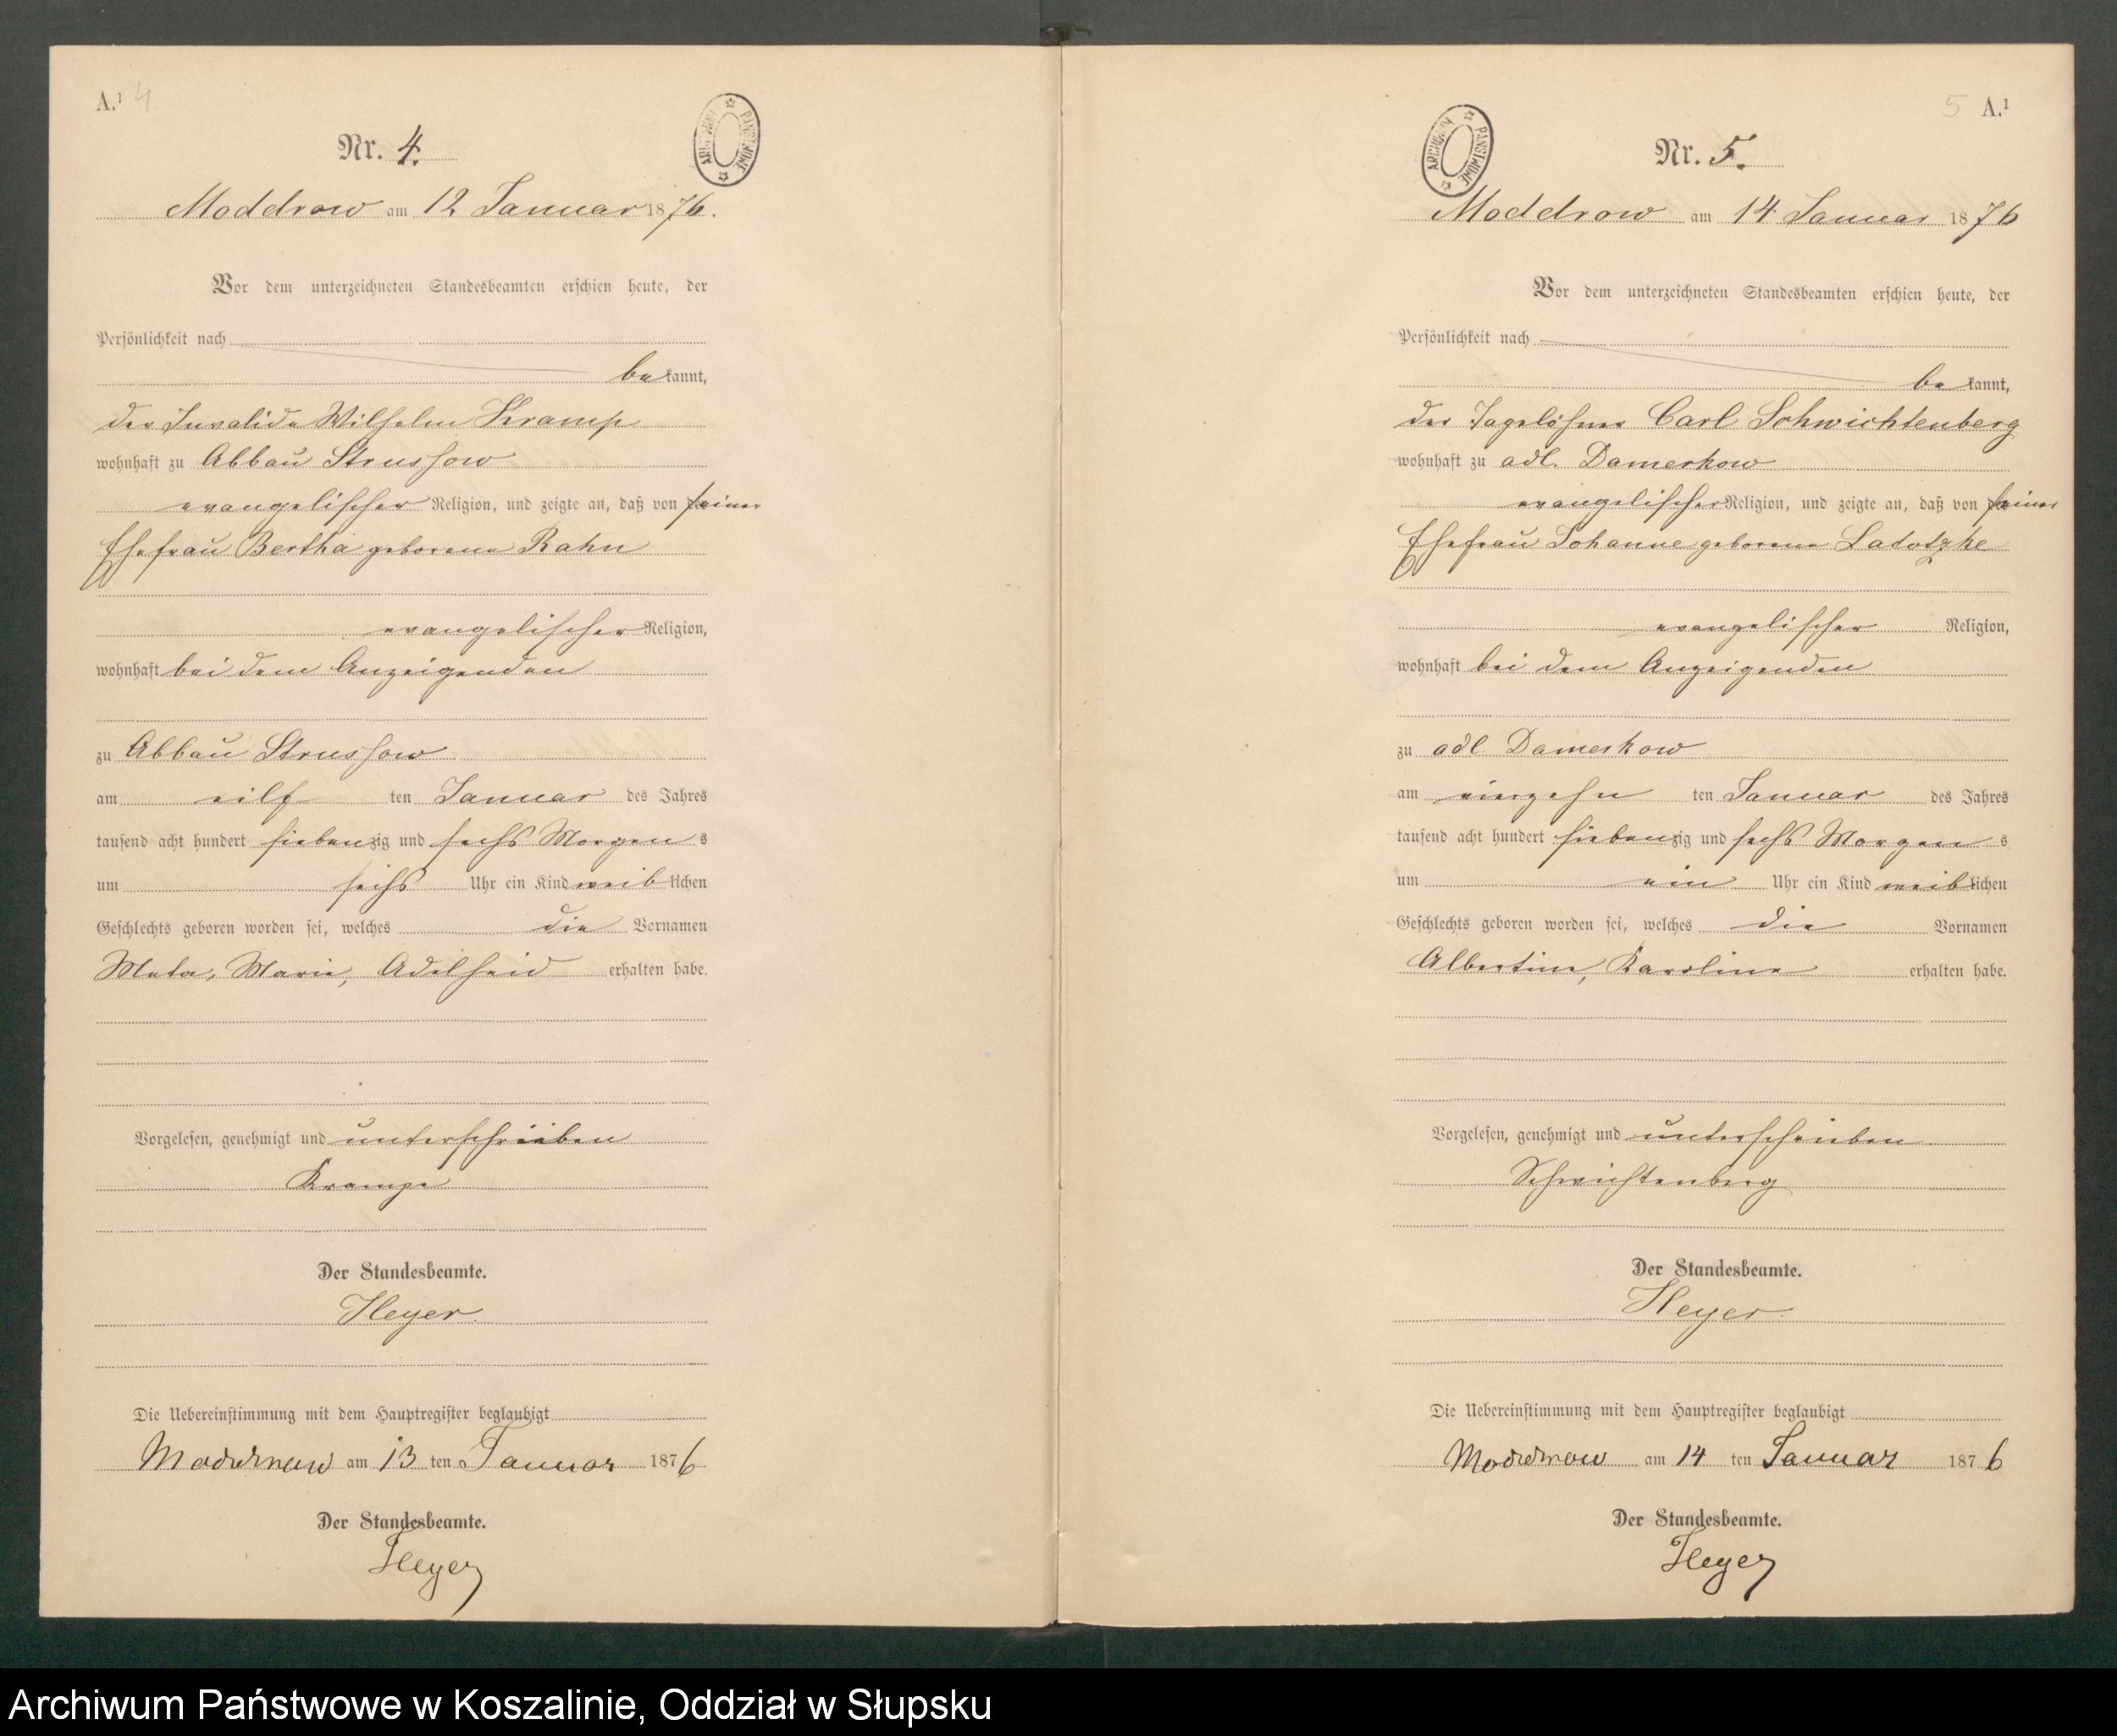 A.¹ 4
Nr. 4.
ARCHIWUM PAŃSTWOWE
Moddrow am 12 Januar 1876.
Vor dem unterzeichneten Standesbeamten erschien heute, der
Persönlichkeit nach
bekannt,
der Invalide Wilhelm Kramp
wohnhaft zu Abbau Strussow
evangelischer Religion, und zeigte an, daß von seiner
Ehefrau Bertha geborene Rahn
evangelischer Religion,
wohnhaft bei dem Anzeigenden
zu Abbau Strussow
am eilf ten Januar des Jahres
tausend acht hundert siebenzig und sechs Morgens
um sechs Uhr ein Kind weiblichen
Geschlechts geboren worden sei, welches die Vornamen
Meta, Marie, Adelheid erhalten habe.
Vorgelesen, genehmigt und unterschrieben
Krampe
Der Standesbeamte.
Heyer.
Die Uebereinstimmung mit dem Hauptregister beglaubigt
Moddrow am 13 ten Januar 1876
Der Standesbeamte.
Heyer
5 A.¹
Nr. 5.
ARCHIWUM PAŃSTWOWE
Moddrow am 14. Januar 1876
Vor dem unterzeichneten Standesbeamten erschien heute, der
Persönlichkeit nach
bekannt,
der Tagelöhner Carl Schwichtenberg
wohnhaft zu adl. Damerkow
evangelischer Religion, und zeigte an, daß von seiner
Ehefrau Johanne geborene Ladotzke
evangelischer Religion,
wohnhaft bei dem Anzeigenden
zu adl Damerkow
am vierzehn ten Januar des Jahres
tausend acht hundert siebenzig und sechs Morgens
um ein Uhr ein Kind weiblichen
Geschlechts geboren worden sei, welches die Vornamen
Albertine, Karoline erhalten habe.
Vorgelesen, genehmigt und unterschrieben
Schwichtenberg
Der Standesbeamte.
Heyer.
Die Uebereinstimmung mit dem Hauptregister beglaubigt
Moddrow am 14 ten Januar 1876
Der Standesbeamte.
Heyer
Archiwum Państwowe w Koszalinie, Oddział w Słupsku